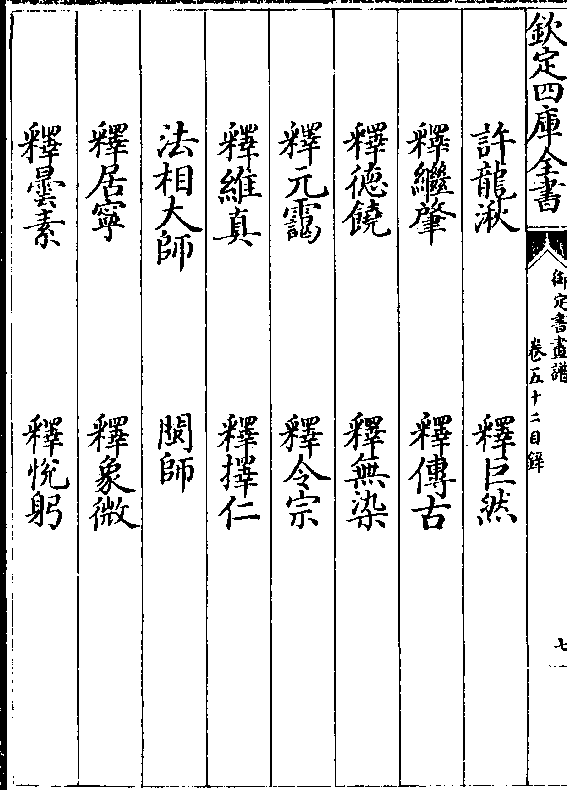 欽定四庫全書
御定書畫譜
卷五十二目錄
七
許龍湫 釋巨然
釋繼肇 釋傳古
釋德饒 釋無染
釋元靄 釋令宗
釋維真 釋擇仁
法相大師 閩師
釋居寧 釋象微
釋曇素 釋悅躬